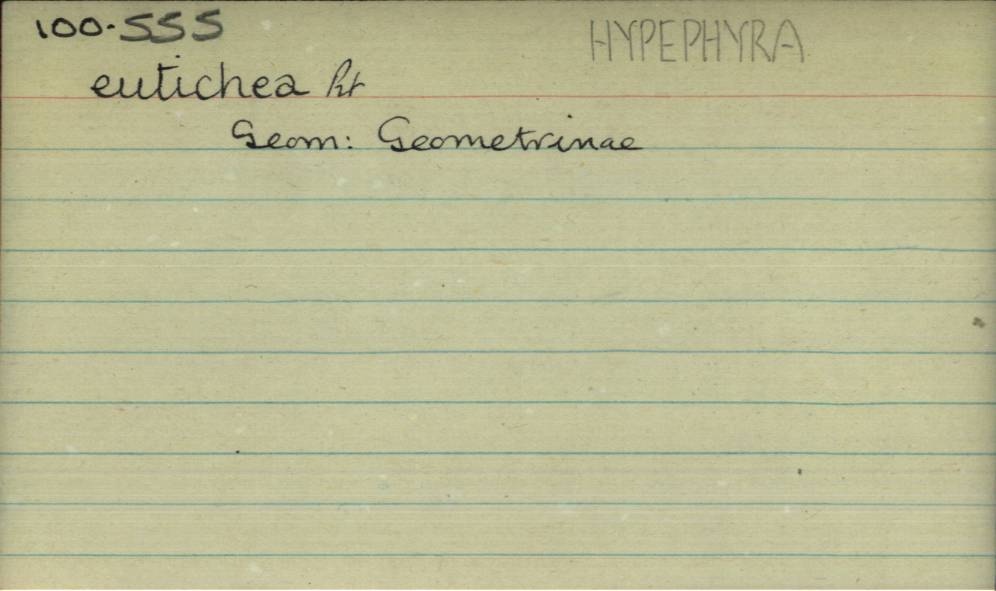 100-555 HYPEPHYRA
eutichea
Geom: Geometrinae